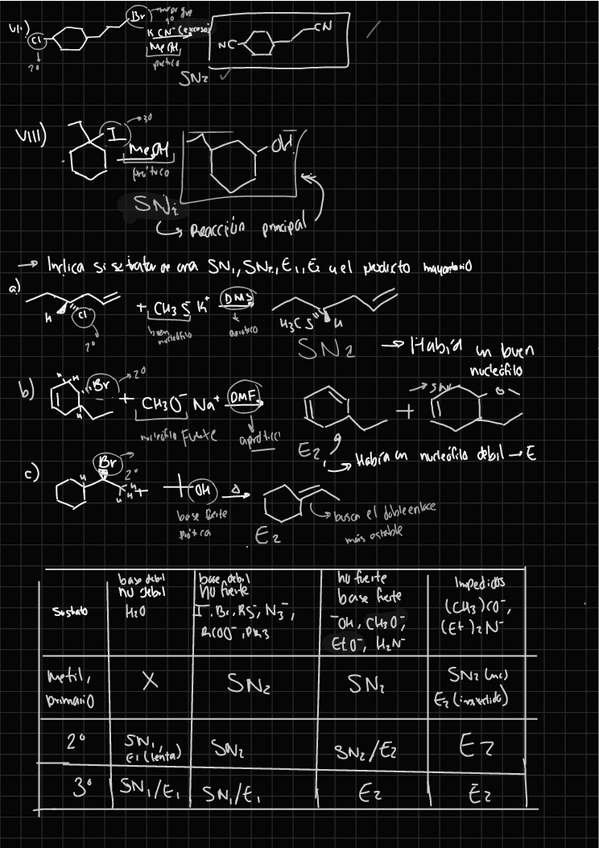 VI.) Br mejor gs 1°
KCN (exceso)
MeOH
prótico
Cl
2°
NC CN
SN2 ✓
VIII) I 3°
MeOH
prótico
OH
SN1
↳ Reacción principal
→ Indica si se trata de una SN1, SN2, E1, E2 y el producto mayoritario
a)
H Cl
2°
+ CH3S⁻ K⁺ DMS
buen nucleófilo
aprótico
H3CS H
SN2 → Habia un buen nucleófilo
b) H Br 2°
H
+ CH3O⁻ Na⁺ DMF
nucleófilo Fuerte
aprótico
+ SN2 O
E2, → Habia un nucleófilo débil → E
c) Br
2°
H H H
+ OH Δ
base fuerte
prótica
E2
↳ busca el doble enlace
más estable
Sustrato
base debil
nu debil
H2O
base debil
nu fuerte
I⁻, Br⁻, RS⁻, N3⁻,
RCOO⁻, PR3
nu fuerte
base fuerte
⁻OH, CH3O⁻,
EtO⁻, H2N⁻
Impedidas
(CH3)CO⁻,
(Et)2N⁻
metil,
primario
X
SN2
SN2
SN2 (me)
E2
2°
SN1,
E1 (lenta)
SN2
SN2/E2
E2
3°
SN1/E1
SN1/E1
E2
E2